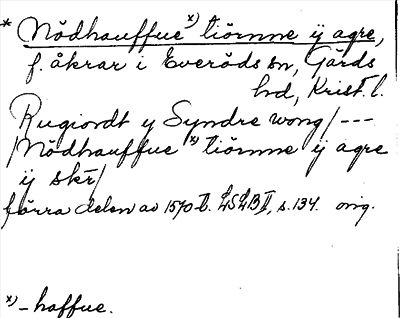 * Nödhauffue x) tiörnne ÿ agre,
f. åkrar i Everöds sn, Gärds
hd, Krist. l.
Rugiordt y Syndre wong/---
/Nödhauffue x) tiörnne ÿ agre
ÿ skr/
förra delen av 1570-t. LSLB II, s. 134. orig.
x) -haffue.